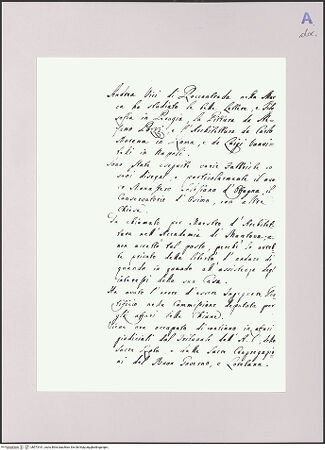 A
doc.
Andrea Vici di Roccontrada nella Mar
ca ha studiato le belle Lettere, e Filo
sofia in Perugia, la Pittura da Ste
fano Pozzi, e l'Architettura da Carlo
Murena in Roma, e da Luigi Vanvi
telli in Napoli.
Sono state eseguite varie Fabbriche co
suoi disegni, e particolarmente il nuo
vo Monastero Cistiano d'Offagna, il
Conservatorio d'Osimo, con altre
Chiese.
Fu chiamato per Maestro d'Architet
tura nell'Accademia di Mantova, e
non accettò tal posto, perchè lo avreb
be privato della libertà d'andare di
quando in quando all'assistenza degl'
interessi della sua Casa.
Ha avuto l'onore d'essere
nella Commissione deputata per
gli affari delle Chiane.
Viene ora occupato di continuo in affari
giudiciali dal Tribunale dell'A. C. della
Sacra Rota, e dalle Sacre Congregazio
ni del Buon Governo, e Loretana.